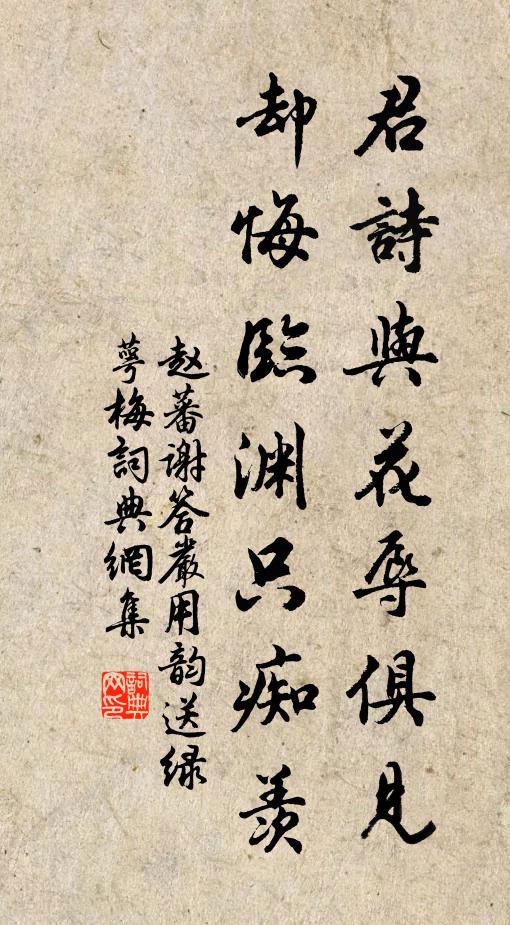 君詩與花辱俱見
却悔臨渊只痴羨
赵蕃谢答嚴用韵送绿
萼梅詞典網集
詞典网印